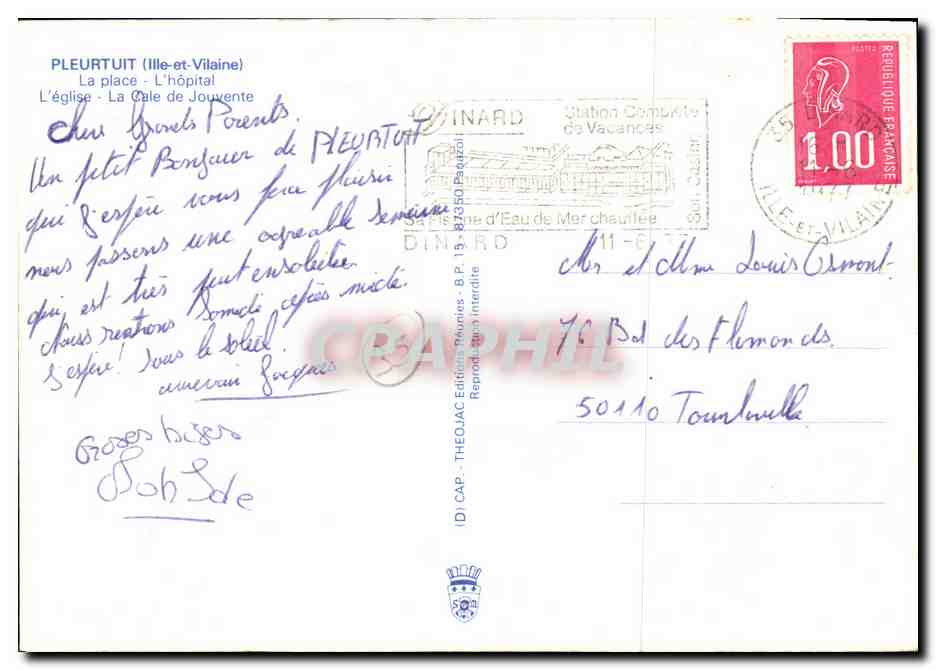 PLEURTUIT (Ille-et-Vilaine)
La place - L'hôpital
L'église - La Cale de Jouvente
Chers Grands Parents.
Un petit Bonjour de PLEURTUIT
qui j'espère vous fera plaisir
nous passons une agréable semaine
qui est très peut ensoleillée.
Nous rentrons Samedi après midi.
J'espère! sous le soleil.
aurevoir Jacques
Groses bizes
35
DINARD
Station Complète
de Vacances
Son Casino
Sa Piscine d'Eau de Mer chauffée
DINARD 11-6
35 DINARD
ILLE-ET-VILAINE
POSTES
REPUBLIQUE FRANÇAISE
1,00
Mr et Mme Louis Osmont
76 Bd des Flamands.
50110 Tourlaville
(D) CAP. - THEOJAC Editions Réunies - B.P. 15 - 87350 Panazol
Reproduction interdite
CPAPHIL